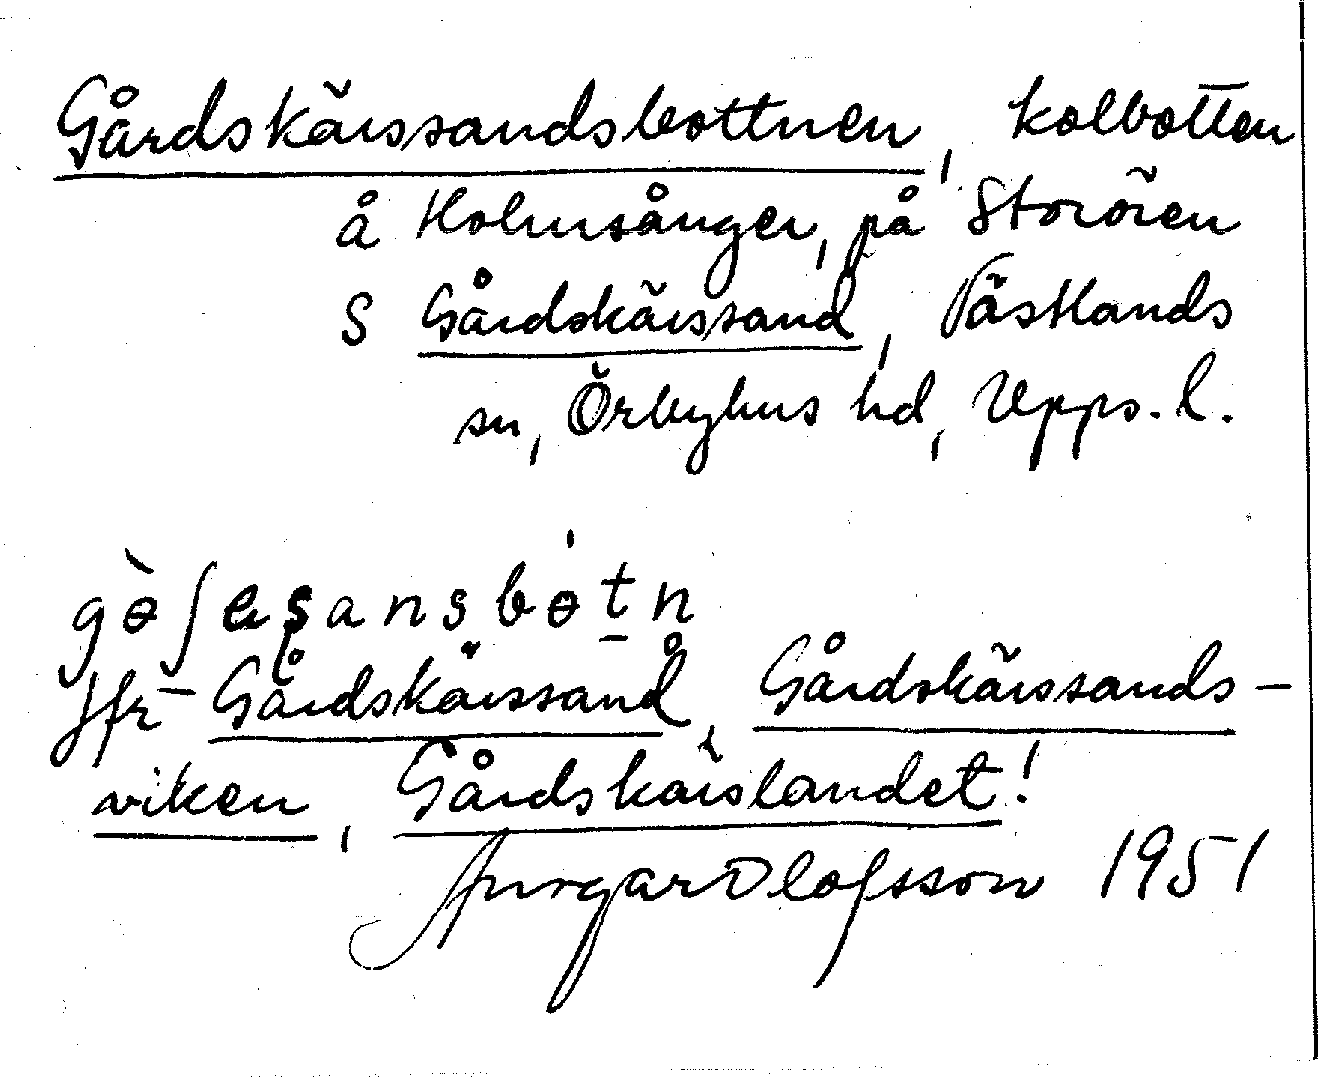 Gårdskärssandsbottnen, kolbotten
å Holmsånger, på Storön
S Gårdskärssand, Västlands
sn, Örbyhus hd, Upps. l.
Jfr Gårdskärssand, Gårdskärssands-
viken, Gårdskärslandet!
Olofsson 1951